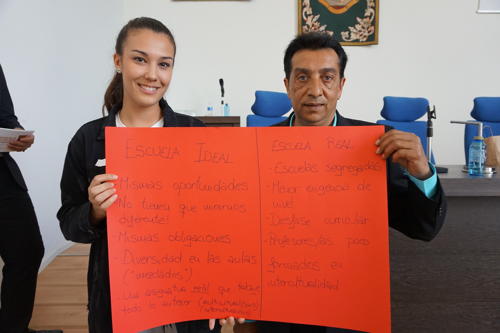 ESCUELA IDEAL
- Mismas oportunidades
No tienen que mirarnos
diferente!
- Mismas obligaciones
- Diversidad en las aulas
("mezclados")
- Una asignatura real que trabaje
todo lo anterior
ESCUELA REAL
- Escuelas segregadas
- Mayor exigencia de
nivel
- Desfase curricular
- Profesores/as poco
formados en
interculturalidad